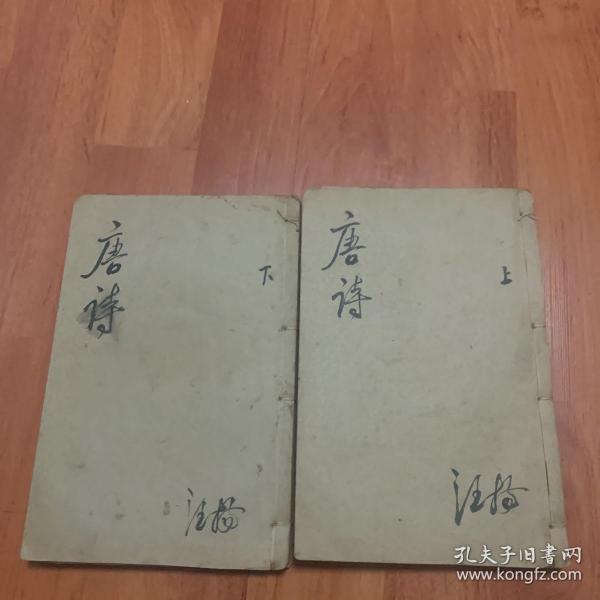 唐诗
下
汪杨
唐诗
上
汪杨
孔夫子旧书网
www.kongfz.com